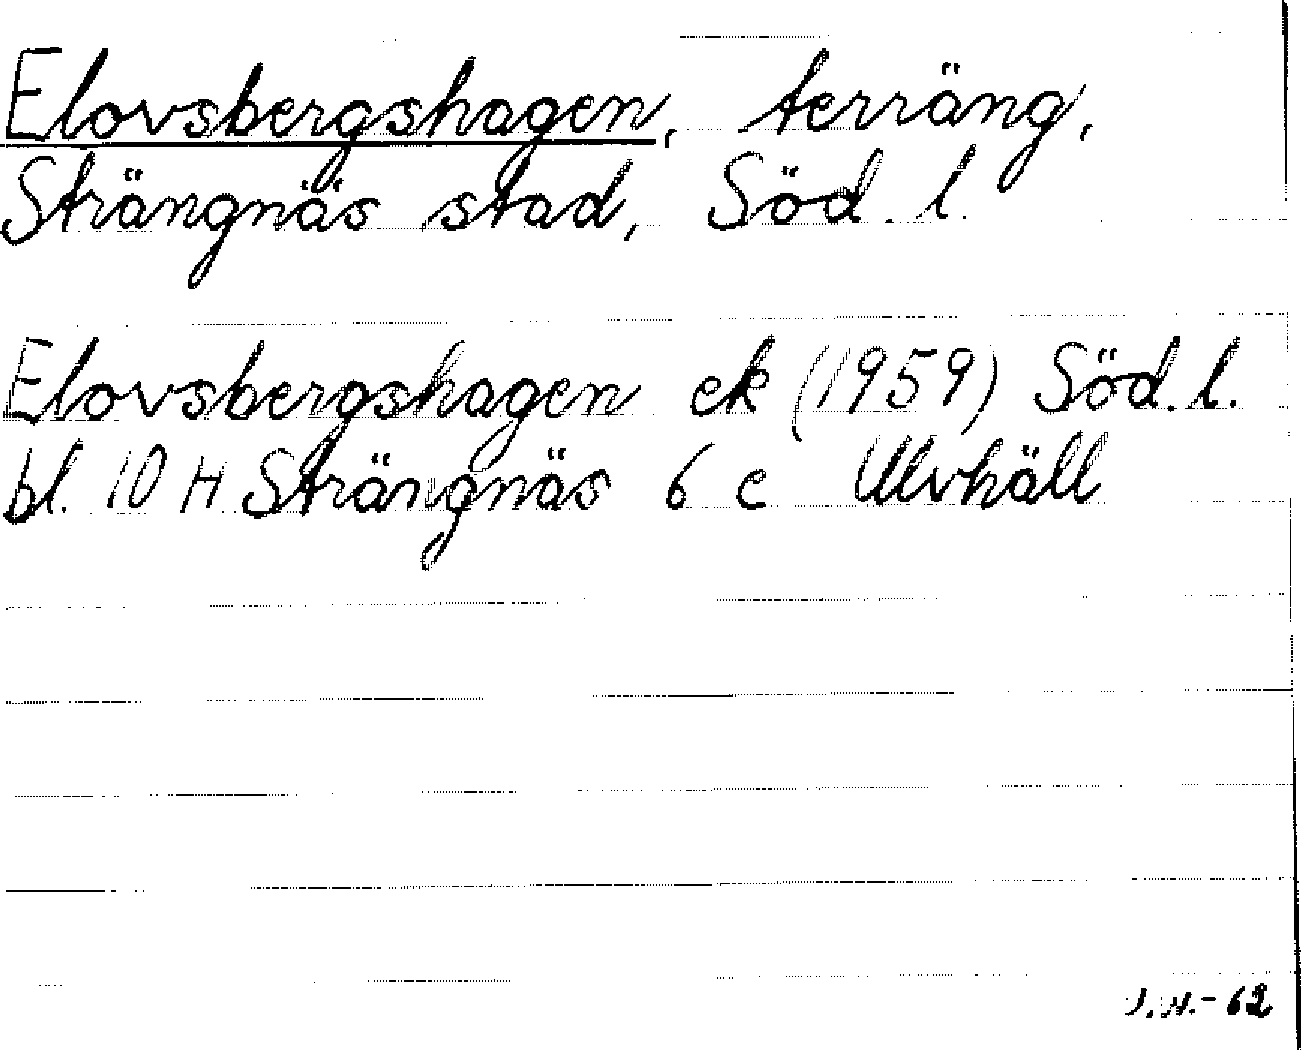 Elovsbergshagen, terräng,
Strängnäs stad, Söd. l.
Elovsbergshagen ek (1959) Söd. l.
bl. 10 H Strängnäs 6 c Ulvhäll
J.H.-62